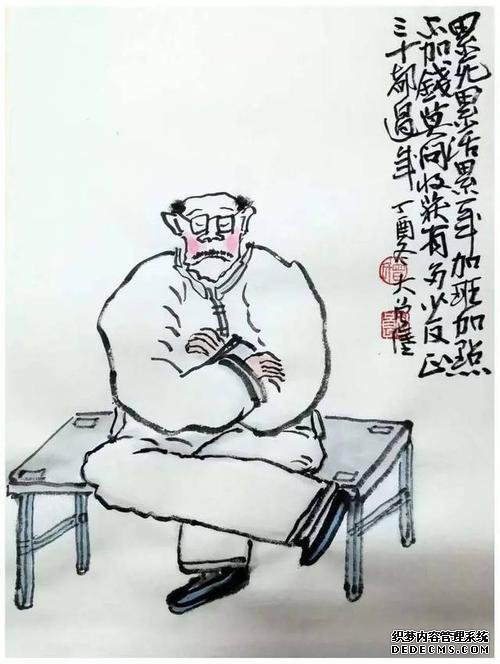 累死累活累一年加班加點
不加錢莫问收获有多少反正
三十都過年
丁酉冬大
织梦内容管理系统
DEDECMS.COM